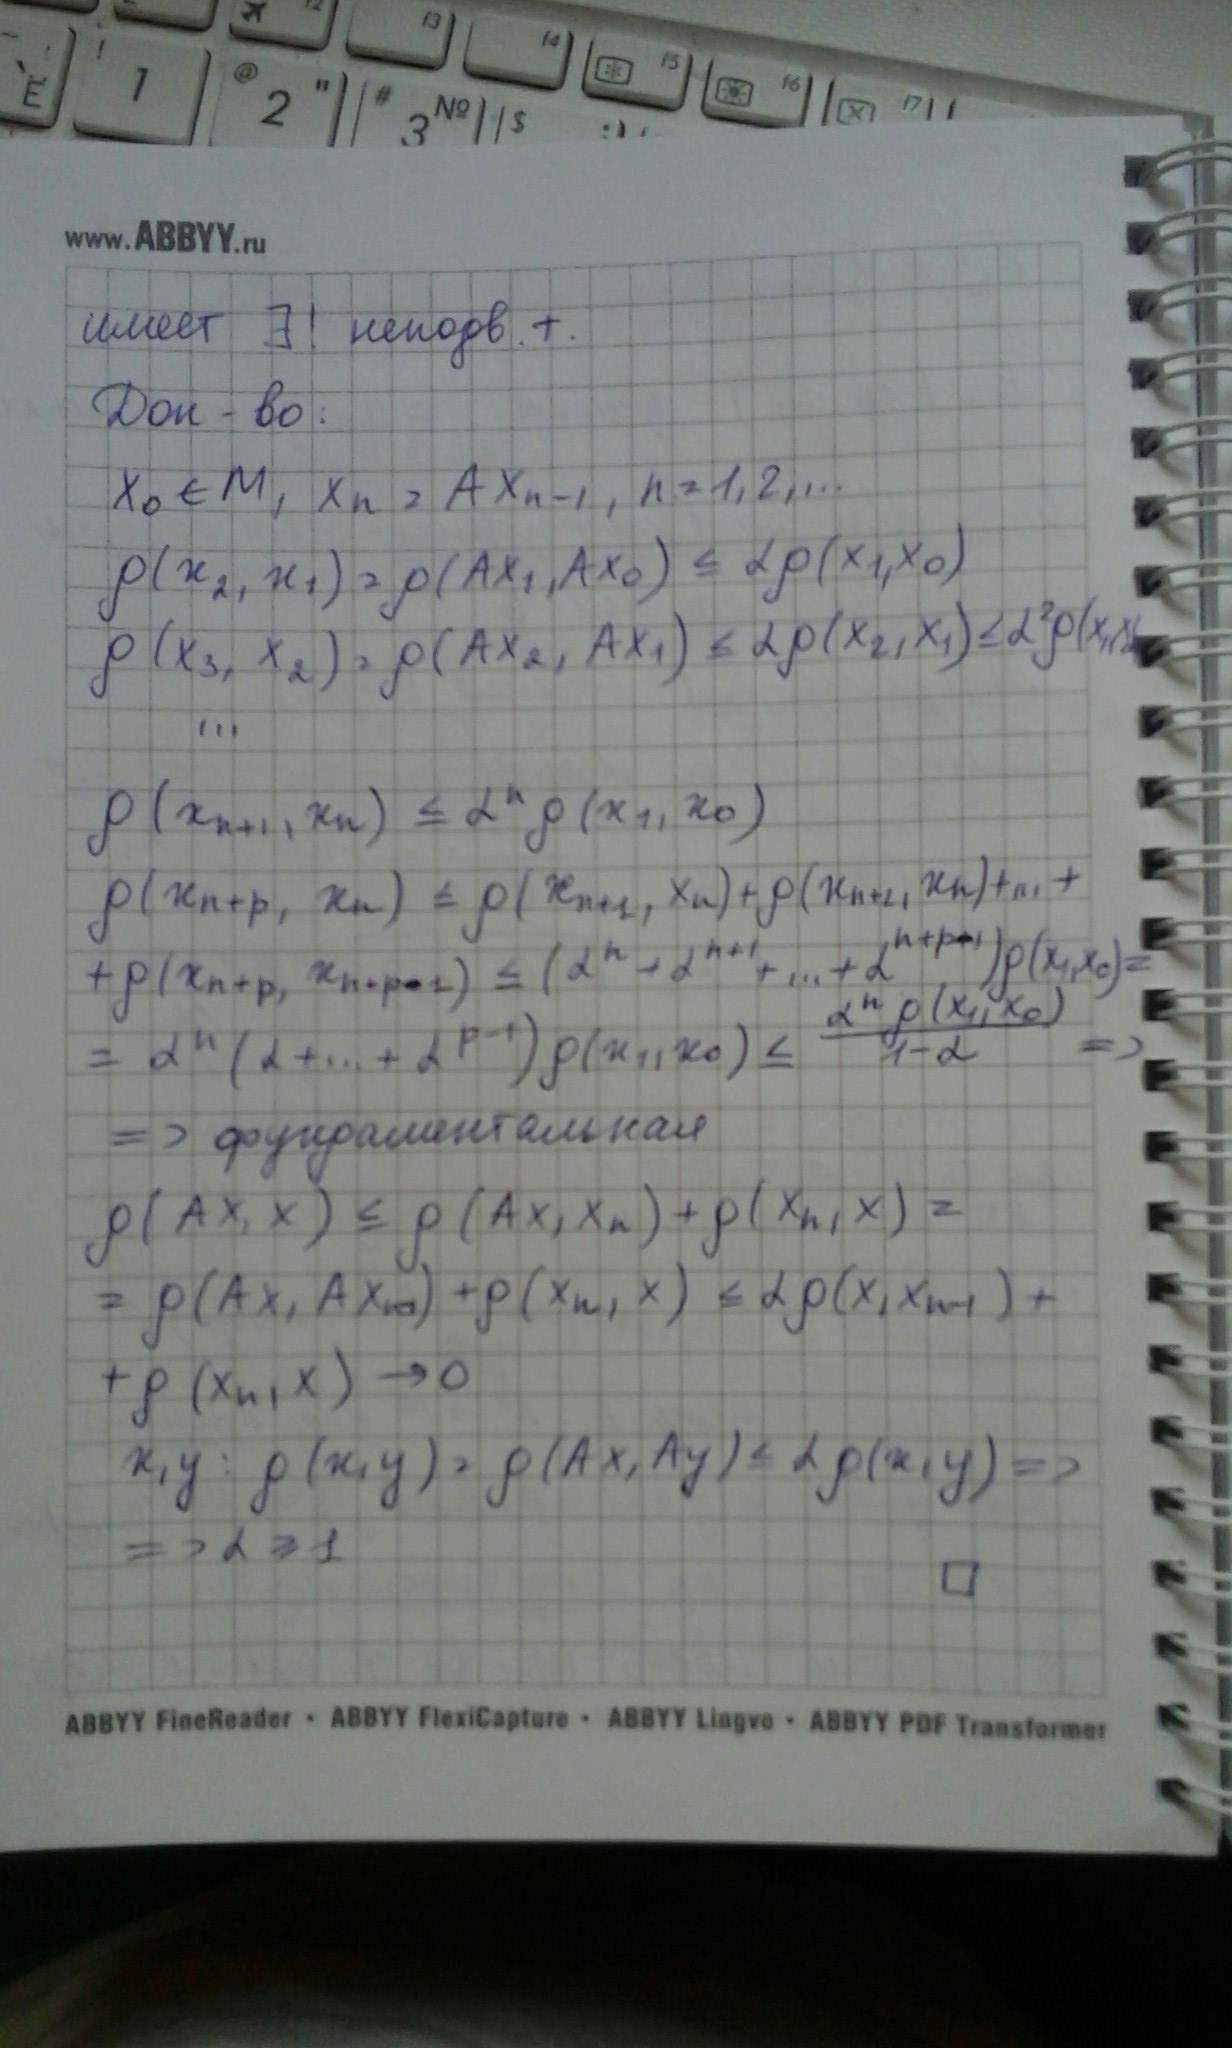 F12 F13 F14 F15 F16 F17
Ё ! 1 @ 2 " # 3 № $
www.ABBYY.ru
имеет ∃! неподв. т.
Док-во:
x₀ ∈ M, xₙ = Axₙ₋₁, n = 1,2,...
ρ(x₂, x₁) = ρ(Ax₁, Ax₀) ≤ αρ(x₁,x₀)
ρ(x₃, x₂) = ρ(Ax₂, Ax₁) ≤ αρ(x₂,x₁) ≤ α²ρ(x₁,x₀)
...
ρ(xₙ₊₁, xₙ) ≤ αⁿρ(x₁, x₀)
ρ(xₙ₊ₚ, xₙ) ≤ ρ(xₙ₊₁, xₙ) + ρ(xₙ₊₂, xₙ) + ... +
+ ρ(xₙ₊ₚ, xₙ₊ₚ₋₁) ≤ (αⁿ + αⁿ⁺¹ + ... + αⁿ⁺ᵖ⁻¹)ρ(x₁,x₀) =
= αⁿ(α + ... + αᵖ⁻¹)ρ(x₁,x₀) ≤ αⁿρ(x₁,x₀)/(1-α) =>
=> фундаментальная
ρ(Ax, x) ≤ ρ(Ax, xₙ) + ρ(xₙ, x) =
= ρ(Ax, Axₙ₋₁) + ρ(xₙ, x) ≤ αρ(x, xₙ₋₁) +
+ ρ(xₙ, x) → 0
x,y: ρ(x,y) = ρ(Ax, Ay) ≤ αρ(x,y) =>
=> α ≥ 1
□
ABBYY FineReader • ABBYY FlexiCapture • ABBYY Lingvo • ABBYY PDF Transformer